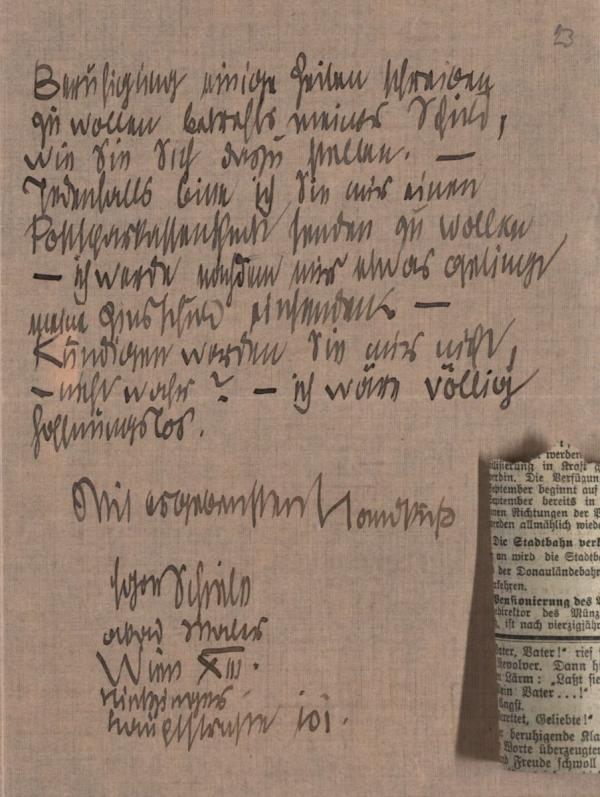 23
Beruhigung einige Zeilen schreiben
zu wollen betreffs meiner Schuld,
wie Sie Sich dazu stellen. —
Jedenfalls bitte ich Sie mir einen
Postsparkassenscheck senden zu wollen
— ich werde nachdem mir etwas gelingt
meine Zinsschuld einsenden. —
Kündigen werden Sie mir nicht,
— nicht wahr? — ich wäre völlig
hoffnungslos.
Mit ergebensten Handkuß
Egon Schiele
akad Maler
Wien XIII.
Hietzinger
hauptstrasse 101.
werden
in Kraft
Die Verfügun
eptember beginnt auf
eptember bereits in
nen Richtungen der
rden allmählich wiede
Die Stadtbahn verk
an wird die Stadtb
der Donauländebahn
kehren.
Pensionierung des
direktor des Münz
ist nach vierzigjähr
ater, Vater!“ rief
Revolver. Dann h
Lärm: „Laßt sie
ein Vater...!“
Angst.
rettet, Geliebte!“
beruhigende Kla
Worte überzeugten
Freude schwoll